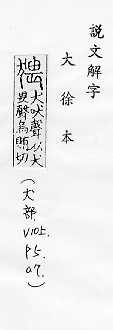 說文解字
大徐本
猥
犬吠聲从犬
畏聲烏賄切
(犬部. V105. P5. 07.)